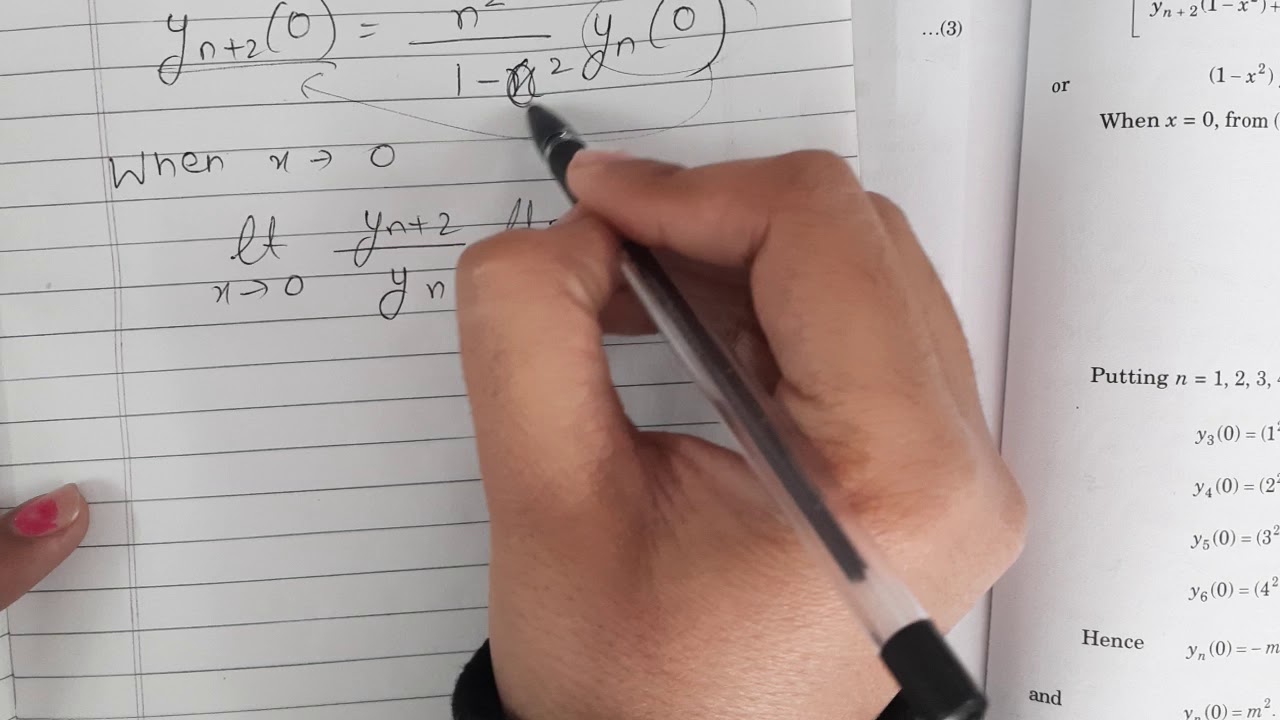 yₙ₊₂(0) = n² / (1 - x²) yₙ(0)
When x → 0
lt x→0 yₙ₊₂ / yₙ
...(3)
yₙ₊₂(1–x²)+
or (1–x²)
When x = 0, from (
Putting n = 1, 2, 3,
y₃(0) = (1²
y₄(0) = (2²
y₅(0) = (3²
y₆(0) = (4²
Hence yₙ(0) = – m
and yₙ(0) = m²